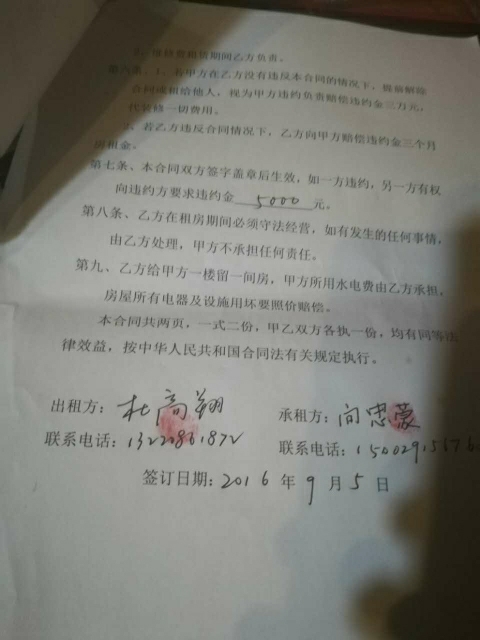 2、维修费租赁期间乙方负责。
第六条、1、若甲方在乙方没有违反本合同的情况下，提前解除
合同或租给他人，视为甲方违约负责赔偿违约金三万元，
代装修一切费用。
、若乙方违反合同情况下，乙方向甲方赔偿违约金三个月
房租金。
第七条、本合同双方签字盖章后生效，如一方违约，另一方有权
向违约方要求违约金 5000 元。
第八条、乙方在租房期间必须守法经营，如有发生的任何事情，
由乙方处理，甲方不承担任何责任。
第九、乙方给甲方一楼留一间房，甲方所用水电费由乙方承担，
房屋所有电器及设施用坏要照价赔偿。
本合同共两页，一式二份，甲乙双方各执一份，均有同等法
律效益，按中华人民共和国合同法有关规定执行。
出租方：杜高翔 承租方：向忠蒙
联系电话：13220861872 联系电话：150029155760
签订日期：2016 年 9 月 5 日